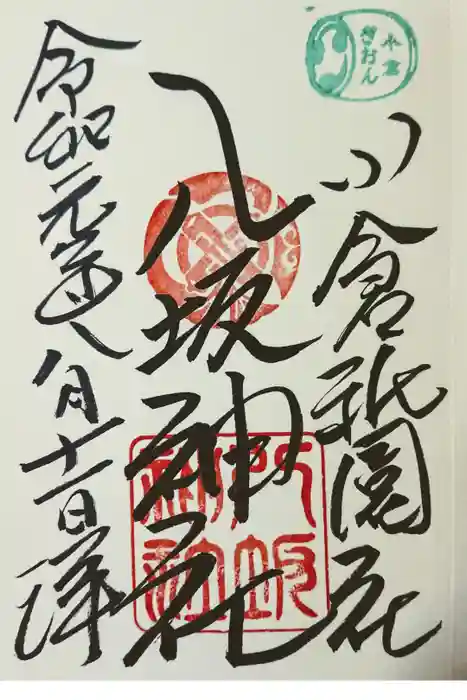 小倉
ぎおん
小倉祇園社
八坂神社
八坂
神社
令和元年八月十一日拝